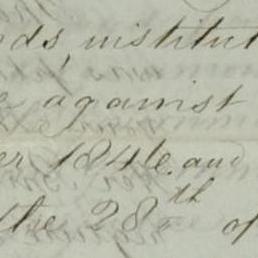 nds, institut
e against
er 1846. and
the 28th of